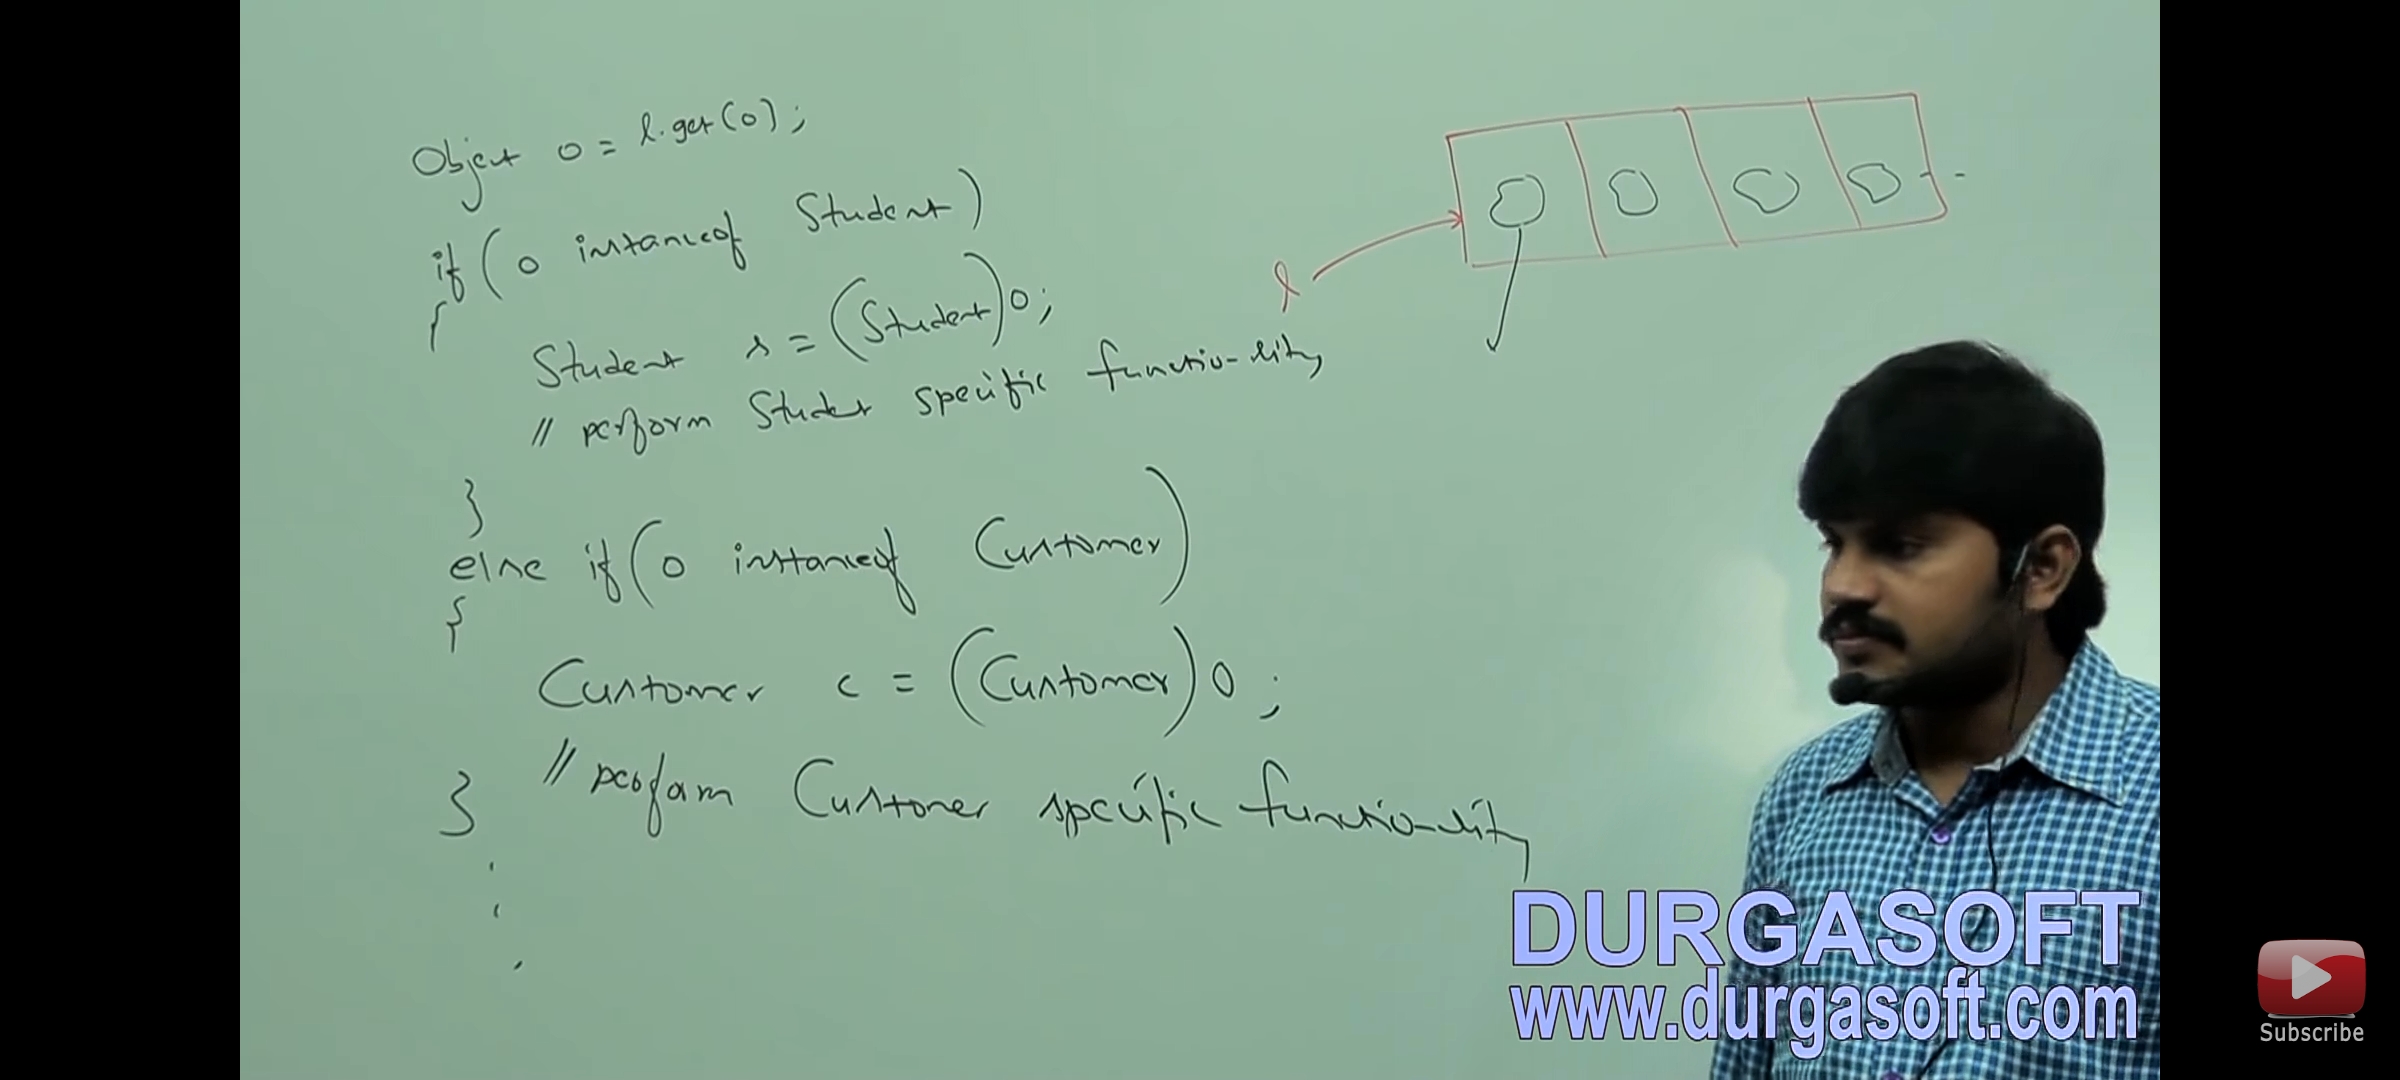 Object o = l.get(0);
if (o instanceof Student)
{
Student s = (Student)o;
// perform Student specific functio-lity
}
else if (o instanceof Customer)
{
Customer c = (Customer)o;
// perform Customer specific functio-lity
}
l
DURGASOFT
www.durgasoft.com
Subscribe